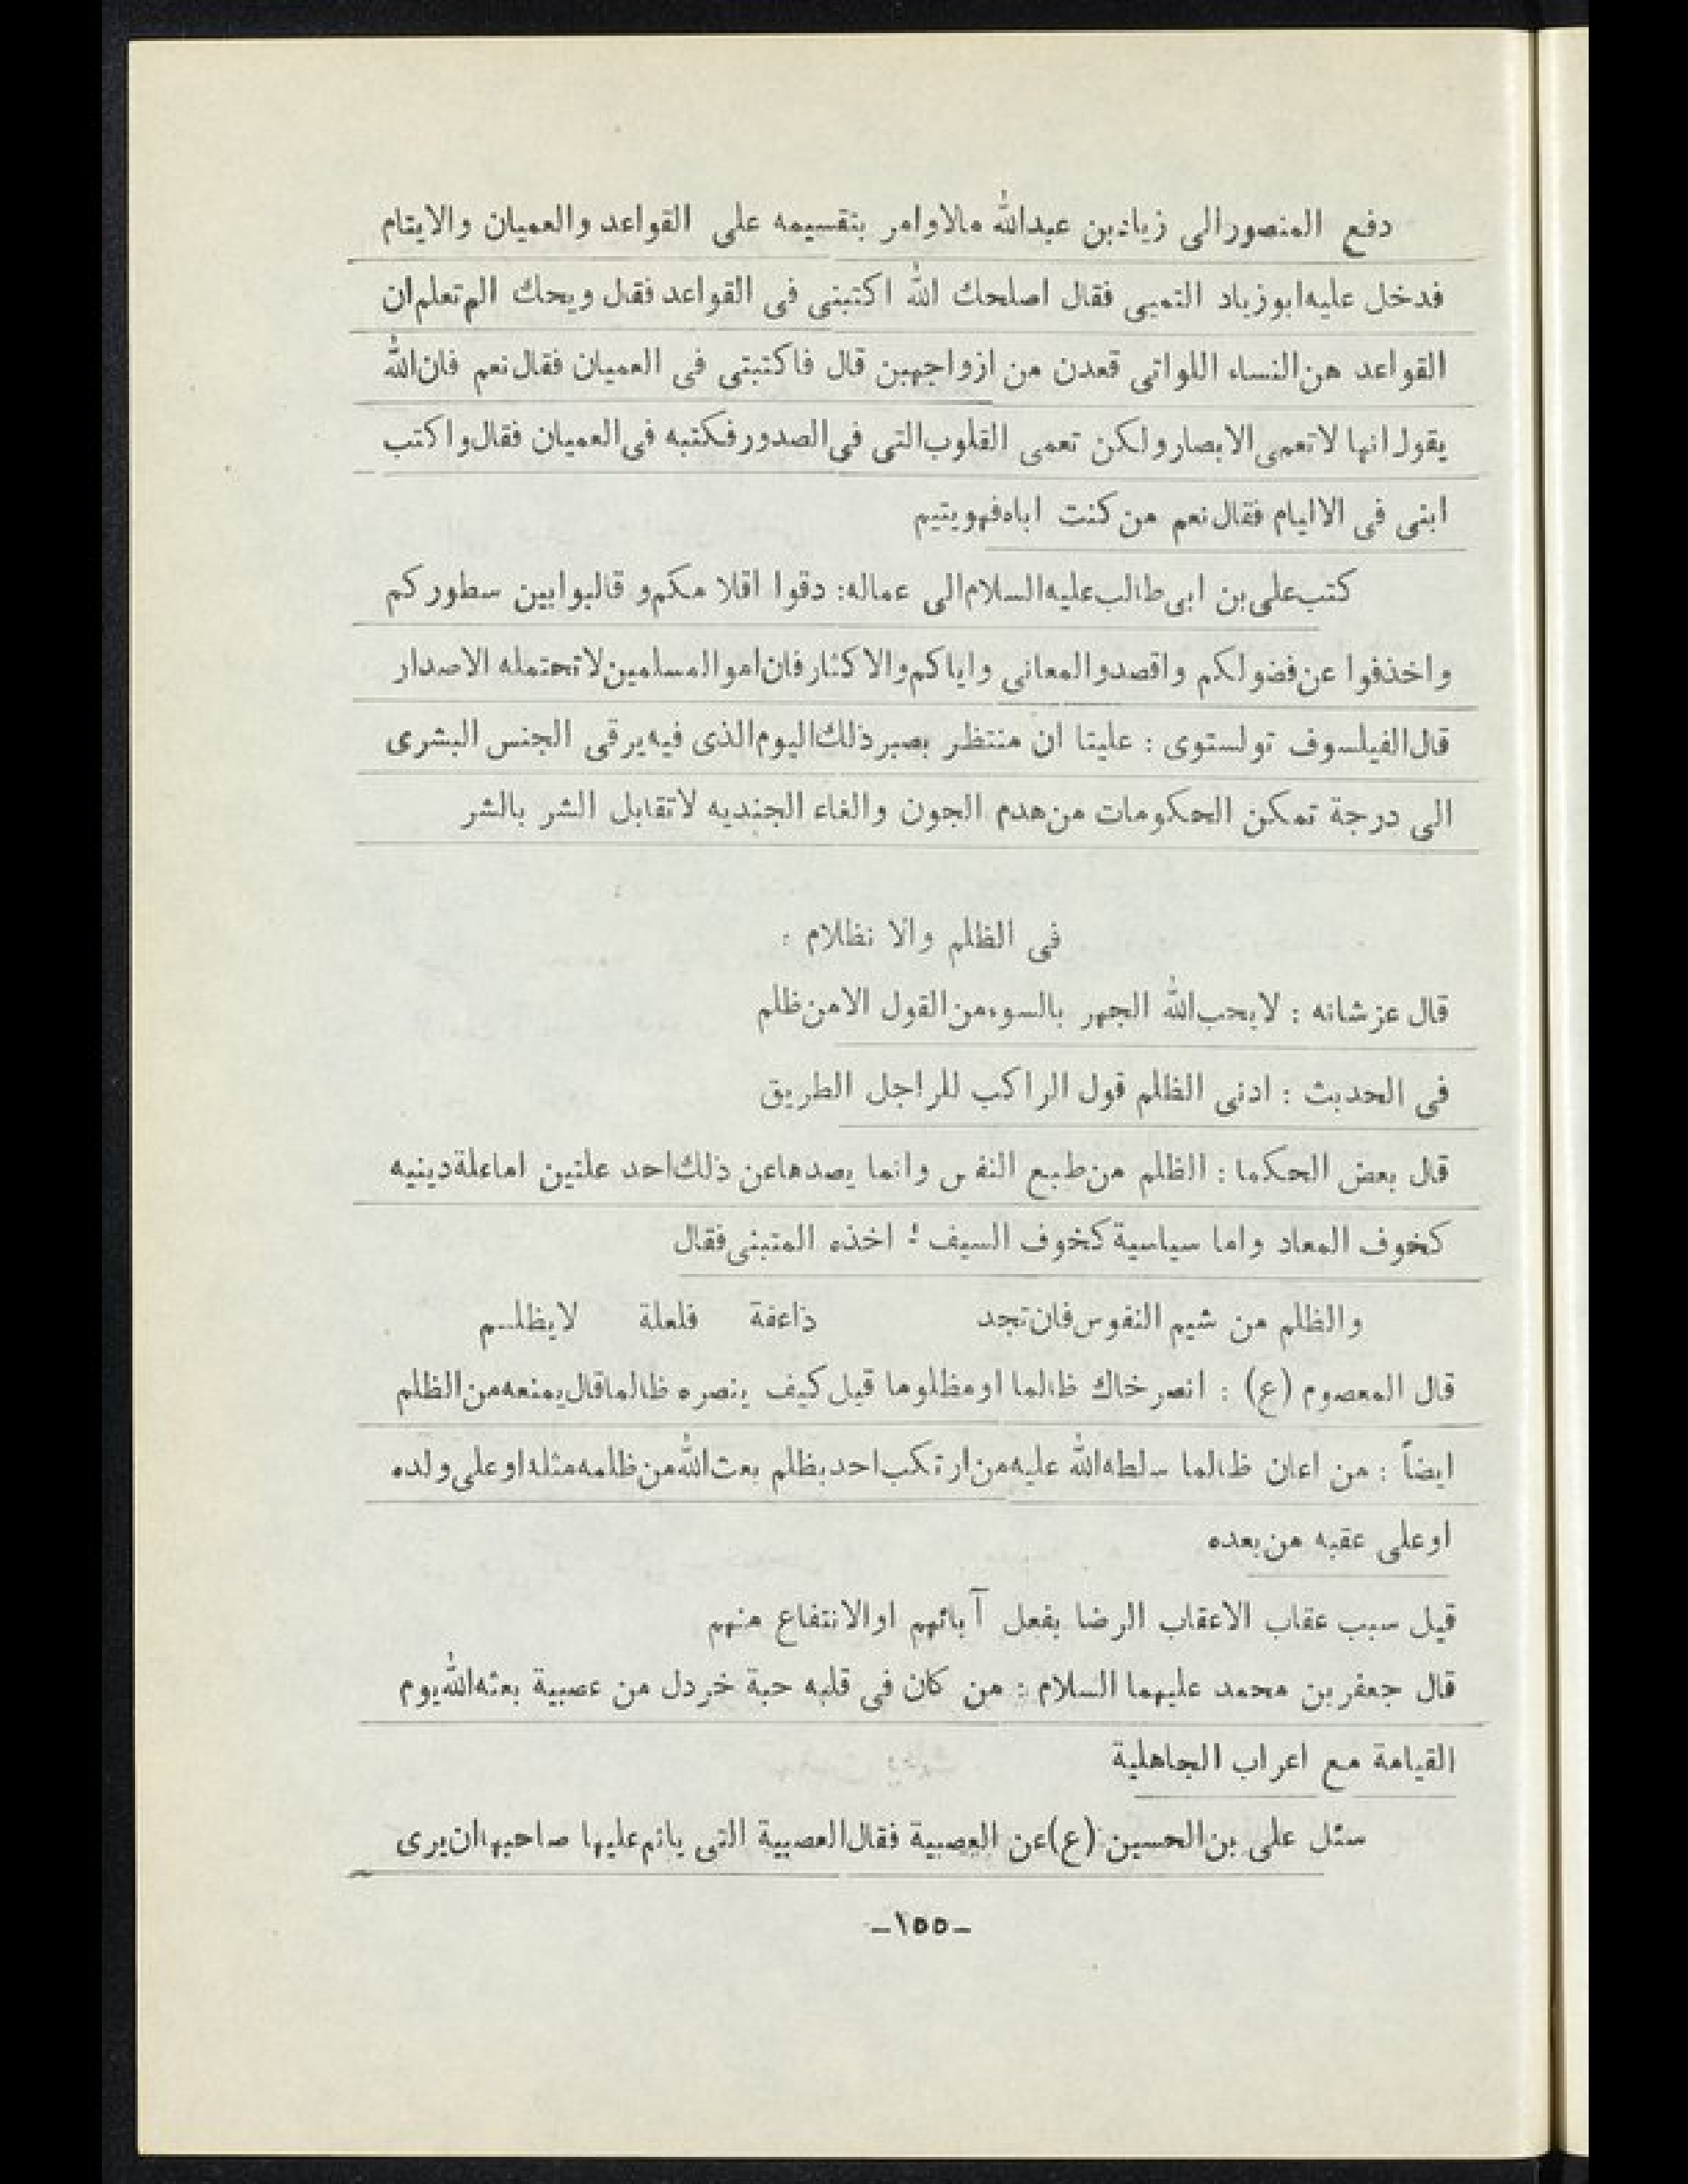 دفع المنصورالى زيادبن عبدالله مالاوامر بتقسيمه على القواعد والعميان والايتام
فدخل عليه ابوزياد التميى فقال اصلحك الله اكتبنى فى القواعد فقال ويحك الم تعلم ان
القواعد هن النساء اللواتى قعدن من ازواجهبن قال فاكتبتى فى العميان فقال نعم فان الله
يقول انها لاتعمى الابصار ولكن تعمى القلوب التى فى الصدور فكتبه فى العميان فقال واكتب
ابنى فى الاليام فقال نعم من كنت اباه فهو يتيم
كتب على بن ابى طالب عليه السلام الى عماله: دقوا اقلا مكم و قالبوا بين سطور كم
واخذفوا عن فضولكم واقصدو المعانى واياكم والاكثار فان اموالمسلمين لاتحتمله الاصدار
قال الفيلسوف تولستوى : عليتا ان منتظر بصبر ذلك اليوم الذى فيه يرقى الجنس البشرى
الى درجة تمكن الحكومات من هدم الجون والغاء الجنديه لاتقابل الشر بالشر
فى الظلم والا نظلام :
قال عز شانه : لايحب الله الجهر بالسوء من القول الا من ظلم
فى الحديث : ادنى الظلم قول الراكب للراجل الطريق
قال بعض الحكما : الظلم من طبع النفس وانما يصدها عن ذلك احد علتين اما علة دينيه
كخوف المعاد واما سياسية كخوف السيف : اخذه المتبنى فقال
والظلم من شيم النفوس فان تجد ذاعفة فلعلة لايظلـم
قال المعصوم (ع) : انصر خاك ظالما او مظلوما قيل كيف ينصره ظالما قال يمنعه من الظلم
ايضاً : من اعان ظالما سلطه الله عليه من ارتكب احد بظلم بعث الله من ظلمه مثله او على ولده
اوعلى عقبه من بعده
قيل سبب عقاب الاعقاب الرضا بفعل آبائهم اوالانتفاع منهم
قال جعفر بن محمد عليهما السلام : من كان فى قلبه حبة خردل من عصبية بعثه الله يوم
القيامة مع اعراب الجاهلية
سئل على بن الحسين (ع) عن العصبية فقال العصبية التى ياثم عليها صاحبها ان يرى
-١٥٥-